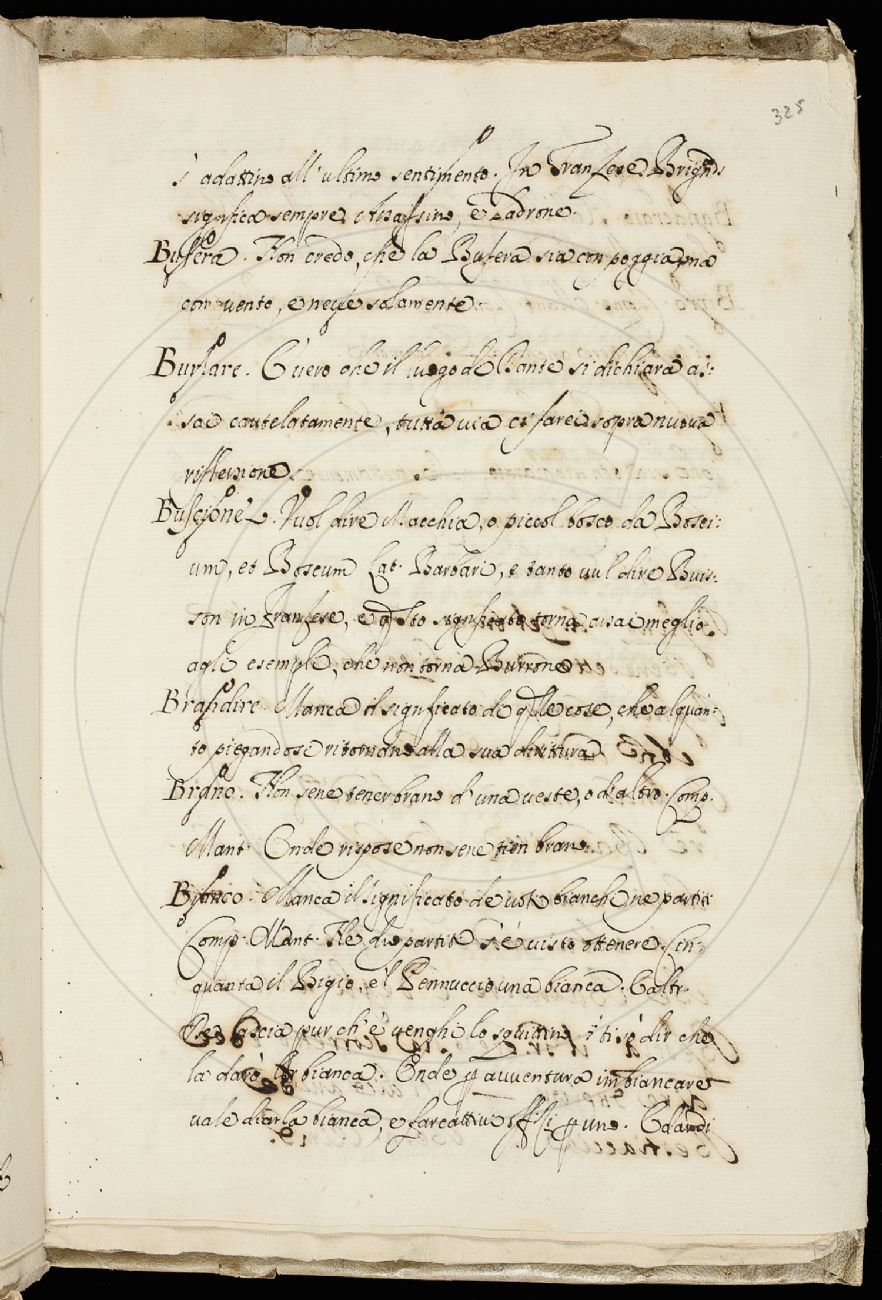 325
s' adattino all' ultimo sentimento. In Franzese Brigand
significa sempre Assassino, e Ladrone.
Bufera. Non credo, che la Bufera sia con pioggia, ma
con vento, e neve solamente.
Burlare. È vero che il luogo di Dante si dichiara as:
sai cautelatamente, tuttavia ci farei sopra nuova
riflessione
Buscione. Vuol dire Macchia, o piccol bosco da Bosci:
um, et Boscum Lat. Barbari, e tanto vuol dire Buis:
son in Franzese, e qsto significato torna assai meglio
agli esempli, che non torna Burrone
Brandire Manca il significato di qlle cose, che alquan:
to piegandosi ritornano alla sua dirittura
Brano. Non sene tener brano d' una veste, o d'altro. Comp.
Mant. Onde rispose non sene tien brano
Bianco. Manca il significato de voti bianchi ne partiti
Comp. Mant. Ne dio partiti s' è visto ottenere Cin:
quanta il Bigio, e 'l Pennuccio una bianca. E altr.
lascia pur ch' e' venghi lo squittino i' ti so dir che
la darò bianca. Onde p avventura imbiancare
vale dar la bianca, e fare cattivi uffizi p uno. E dar di